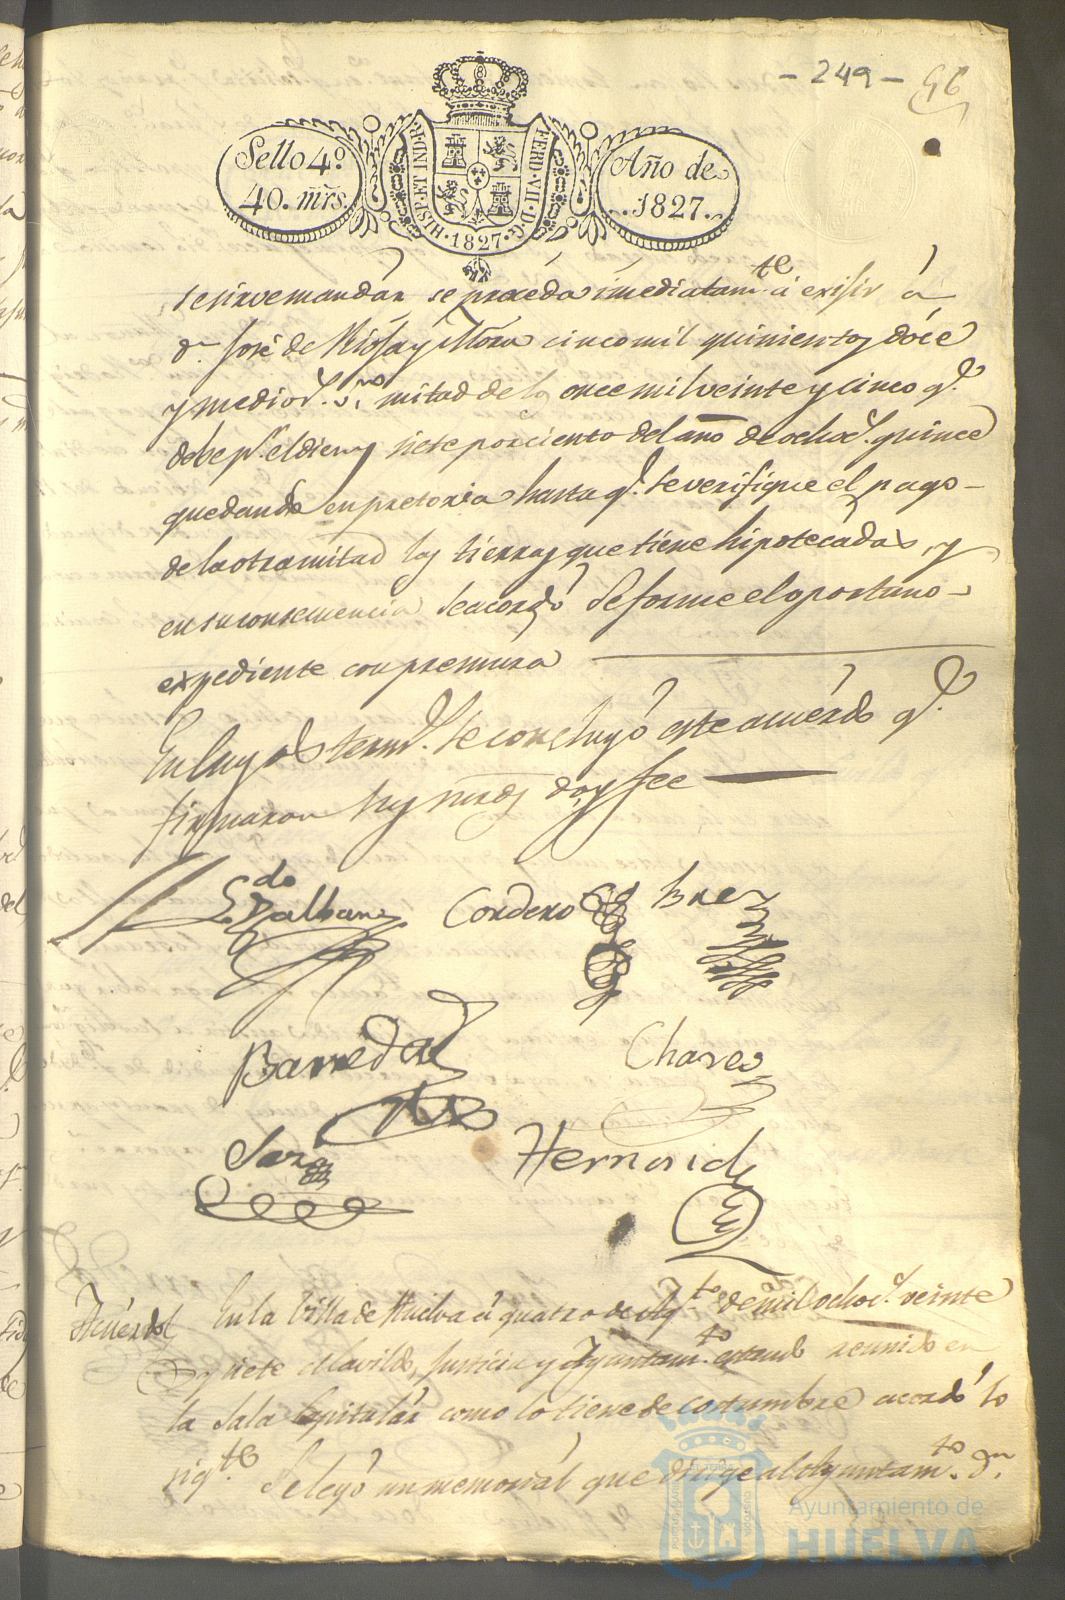 - 249 - 96
Sello 4º
40. mrs.
HISP. ET IND. R. FERD. VII. D. G. 1827.
Año de
1827.
se sirve mandar se proceda imediatamte. á exisir á
dn. José de Mora cinco mil quinientos doce
y medio rs. vn. mitad de los once mil veinte y cinco q.
debe pr. el diez y siete por ciento del año de ochocs. quince
quedando en pretoria hasta q. se verifique el pago
de la otra mitad las tierras que tiene hipotecadas, y
en su consecuencia se acordó se forme el oportuno
expediente con premura
En cuyos term.s se concluyó este acuerdo q.
firmaron sus mrds doy fee
Ldo. Balbany Cordero
Barreda Chaves
Hernandz
Acuerdo En la Villa de Huelva á quatro de Agto. de mil ochocs. veinte
y siete el Cavildo, Justicia y Ayuntamto. estando reunido en
la Sala Capitular como lo tiene de costumbre acordó lo
sigte.
Se leyó un memorial que dirige al Ayuntamto. Dn.
Ayuntamiento de
HUELVA